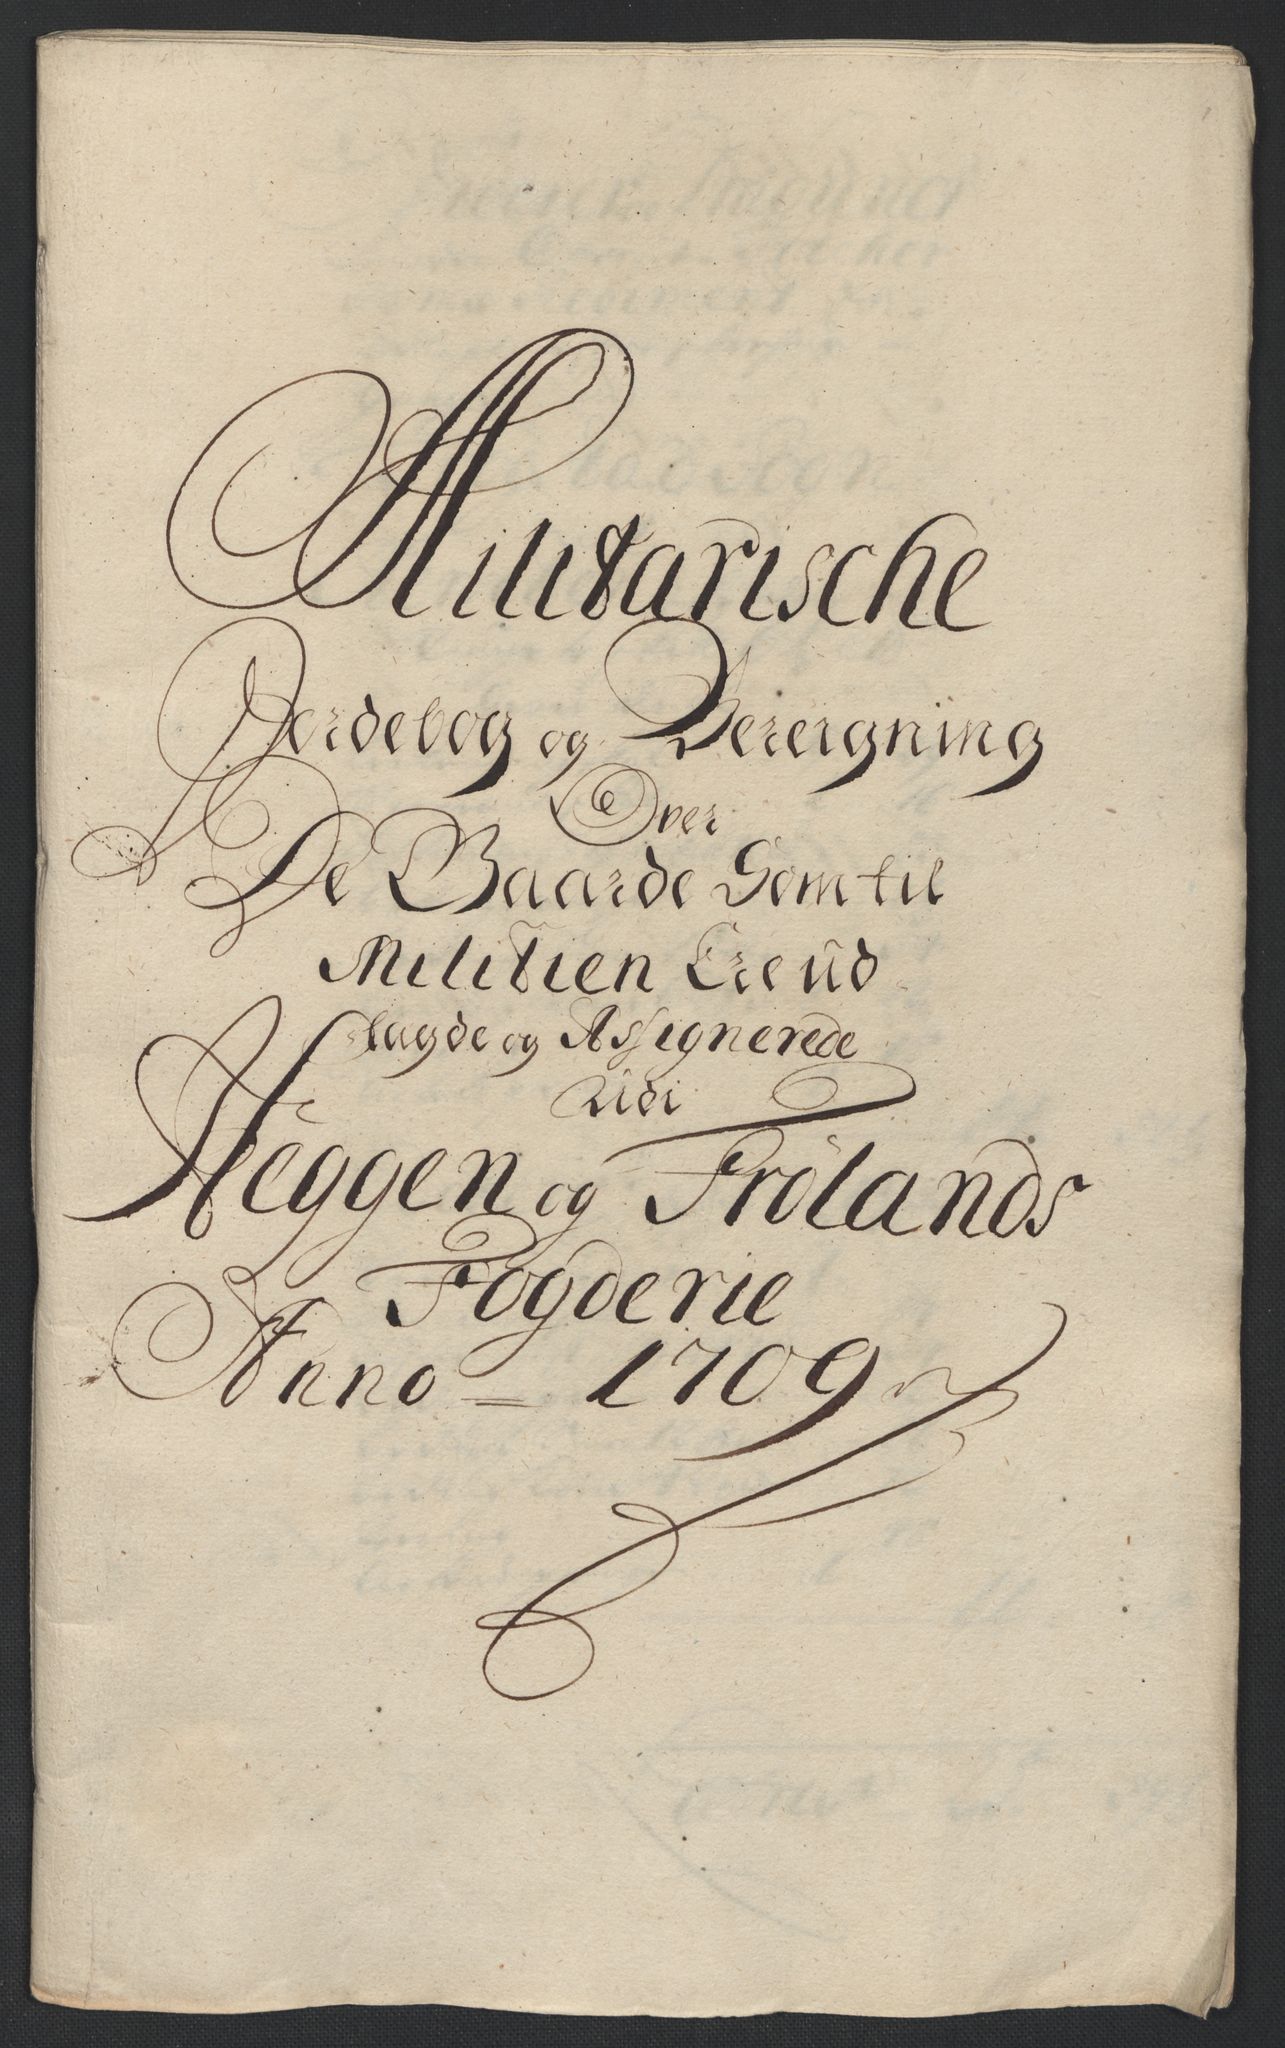 Militarische
Jordebog og Beregning
Over
De Gaarde Som til
Militien Ere üd
lagde og Assignerede
udi
Heggen og Frölands
Fogderie
Anno = 1709